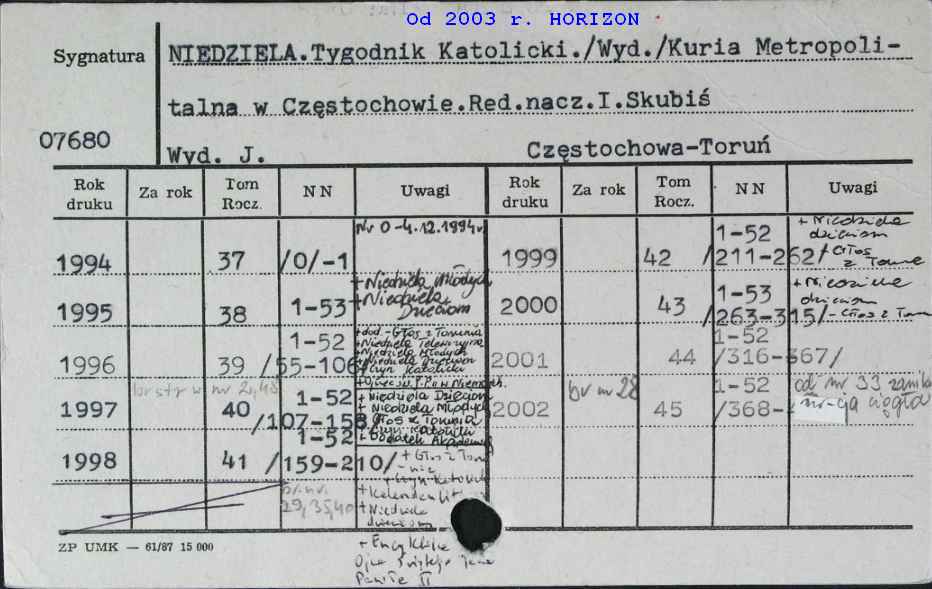 Od 2003 r. HORIZON
Sygnatura
NIEDZIELA.Tygodnik Katolicki./Wyd./Kuria Metropoli-
talna w Częstochowie.Red.nacz.I.Skubiś
07680
Wyd. J. Częstochowa-Toruń
Rok druku Za rok Tom Rocz. NN Uwagi Rok druku Za rok Tom Rocz. NN Uwagi
1994 37 /0/-1 Nr 0-4.12.1994r. 1999 42 1-52 /211-262/ + Niedziela dzieciom + Głos z Torunia
1995 38 1-53 + Niedziela Młodych + Niedziela Dzieciom 2000 43 1-53 /263-315/ + Niedziela dzieciom - Głos z Torunia
1996 39 1-52 /55-106/ + dod.-Głos z Torunia + Niedziela Młodych + Niedziela Dzieciom + Czyn Katolicki 2001 44 1-52 /316-367/
1997 brstr w nr 2,48 40 1-52 /107-158 + Niedziela Dzieciom + Niedziela Młodych Głos z Torunia + Czyn Katolicki + Dodatek 2002 br nr 28 45 1-52 /368- od nr 33 zanika nr-cja ciągła
1998 41 1-52 /159-210/ + Głos z Torunia + Czyn Katolicki
br.nr. 29,35,40
+ Niedziela dzieciom
+ Encyklika
Ojca Świętego Jana
Pawła II
ZP UMK — 61/87 15 000